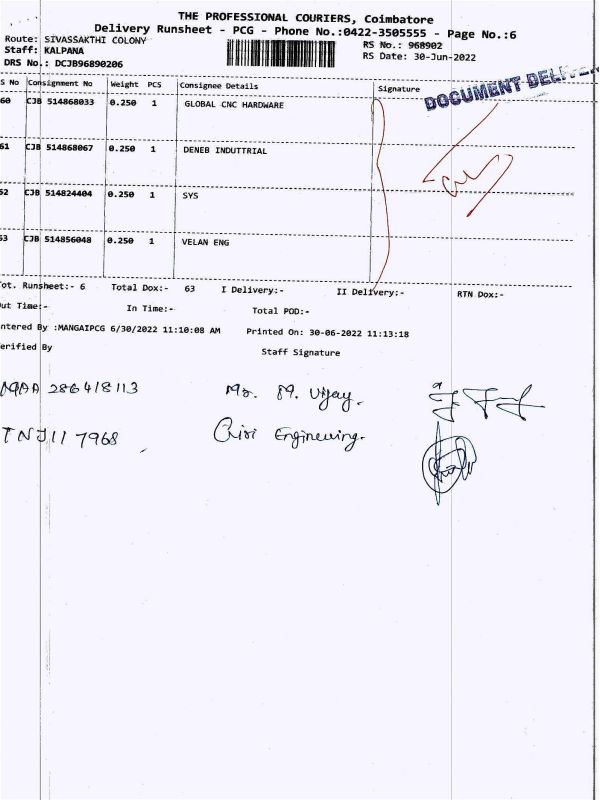 THE PROFESSIONAL COURIERS, Coimbatore
Delivery Runsheet - PCG - Phone No.:0422-3505555 - Page No.:6
Route: SIVASSAKTHI COLONY
RS No.: 968902
Staff: KALPANA
RS Date: 30-Jun-2022
DRS No.: DCJB96890206
S No Consignment No Weight PCS Consignee Details Signature
DOCUMENT
60 CJB 514868033 0.250 1 GLOBAL CNC HARDWARE
61 CJB 514868067 0.250 1 DENEB INDUTTRIAL
62 CJB 514824404 0.250 1 SYS
63 CJB 514856048 0.250 1 VELAN ENG
ot. Runsheet:- 6 Total Dox:- 63 I Delivery:- II Delivery:- RTN Dox:-
ut Time:- In Time:- Total POD:-
ntered By :MANGAIPCG 6/30/2022 11:10:08 AM Printed On: 30-06-2022 11:13:18
erified By
Staff Signature
MAA 286418113 Mr. M. Vijay.
TNJ117968 Engineering.